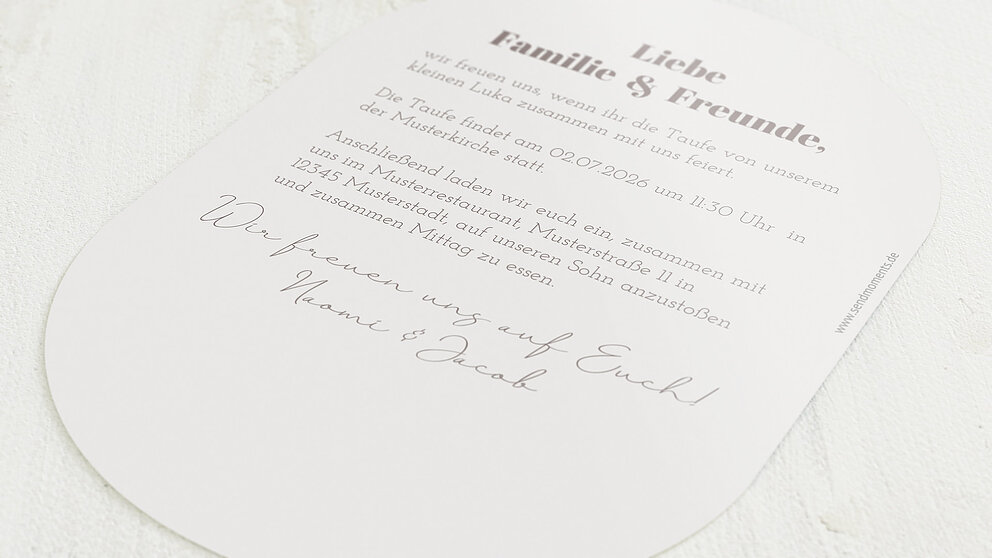 Liebe
Familie & Freunde,
wir freuen uns, wenn ihr die Taufe von unserem
kleinen Luka zusammen mit uns feiert.
Die Taufe findet am 02.07.2026 um 11:30 Uhr in
der Musterkirche statt.
Anschließend laden wir euch ein, zusammen mit
uns im Musterrestaurant, Musterstraße 11 in
12345 Musterstadt, auf unseren Sohn anzustoßen
und zusammen Mittag zu essen.
Wir freuen uns auf Euch!
Naomi & Jacob
www.sendmoments.de